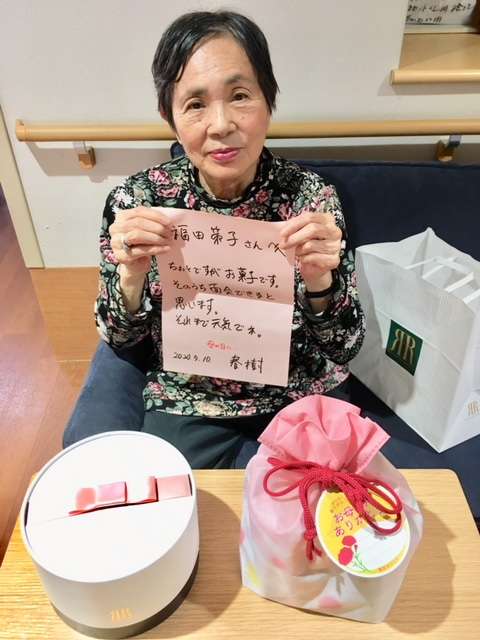 福田第子さんへ
ちょっとですが お菓子です。
そのうち面会できると
思います。
それまで元気でネ。
母の日に
2020.5.10 春樹
RR
RR
お母
ありが